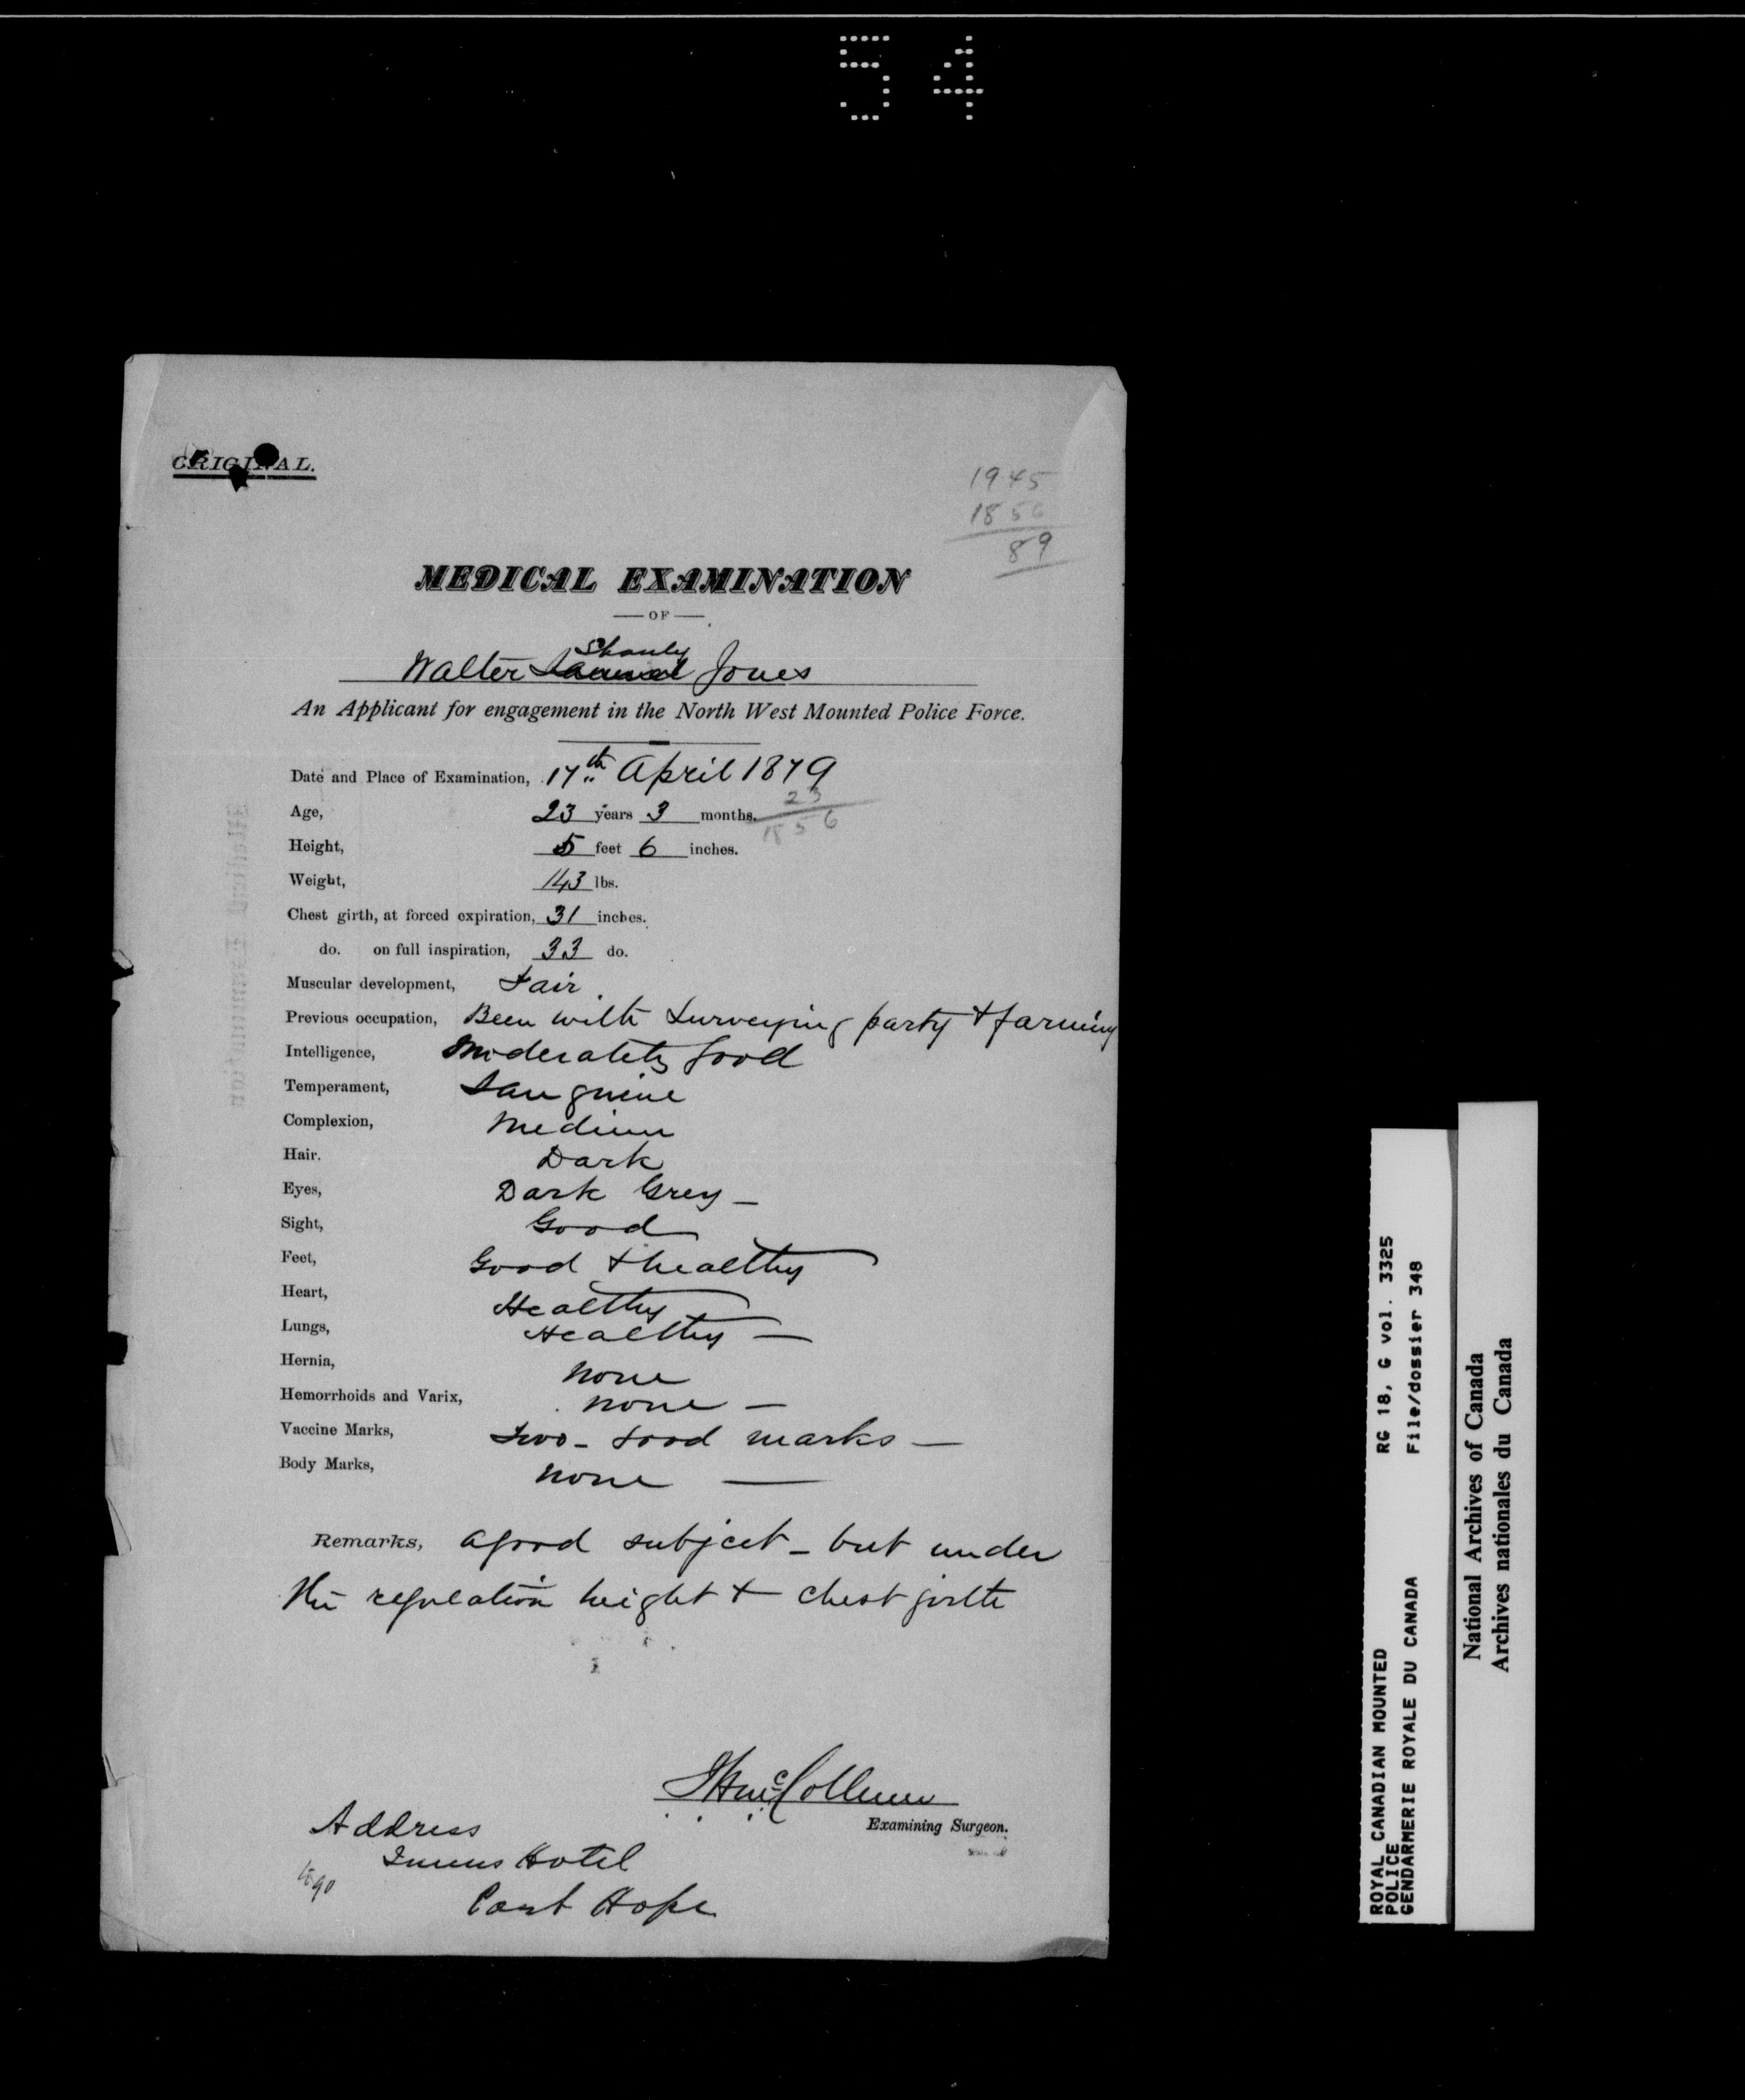 54
ORIGINAL.
1945
1856
89
MEDICAL EXAMINATION
— OF —
Shanly
Walter Samuel Jones
An Applicant for engagement in the North West Mounted Police Force.
Date and Place of Examination, 17th April 1879
23
Age, 23 years 3 months.
1856
Height, 5 feet 6 inches.
Weight, 143 lbs.
Chest girth, at forced expiration, 31 inches.
do. on full inspiration, 33 do.
Muscular development, Fair
Previous occupation, Been with Surveying party & farming
Intelligence, Moderately good
Temperament, Sanguine
Complexion, Medium
Hair. Dark
Eyes, Dark Grey —
Sight, Good
Feet, Good & healthy
Heart, Healthy
Lungs, Healthy —
Hernia, None
Hemorrhoids and Varix, None —
Vaccine Marks, Two - Good marks —
Body Marks, None —
Remarks, A good subject - but under
the regulation height & chest girth
McCollum
Examining Surgeon.
Address
Hotel
Port Hope
90
ROYAL CANADIAN MOUNTED POLICE
GENDARMERIE ROYALE DU CANADA
RG 18, G vol. 3325
File/dossier 348
National Archives of Canada
Archives nationales du Canada